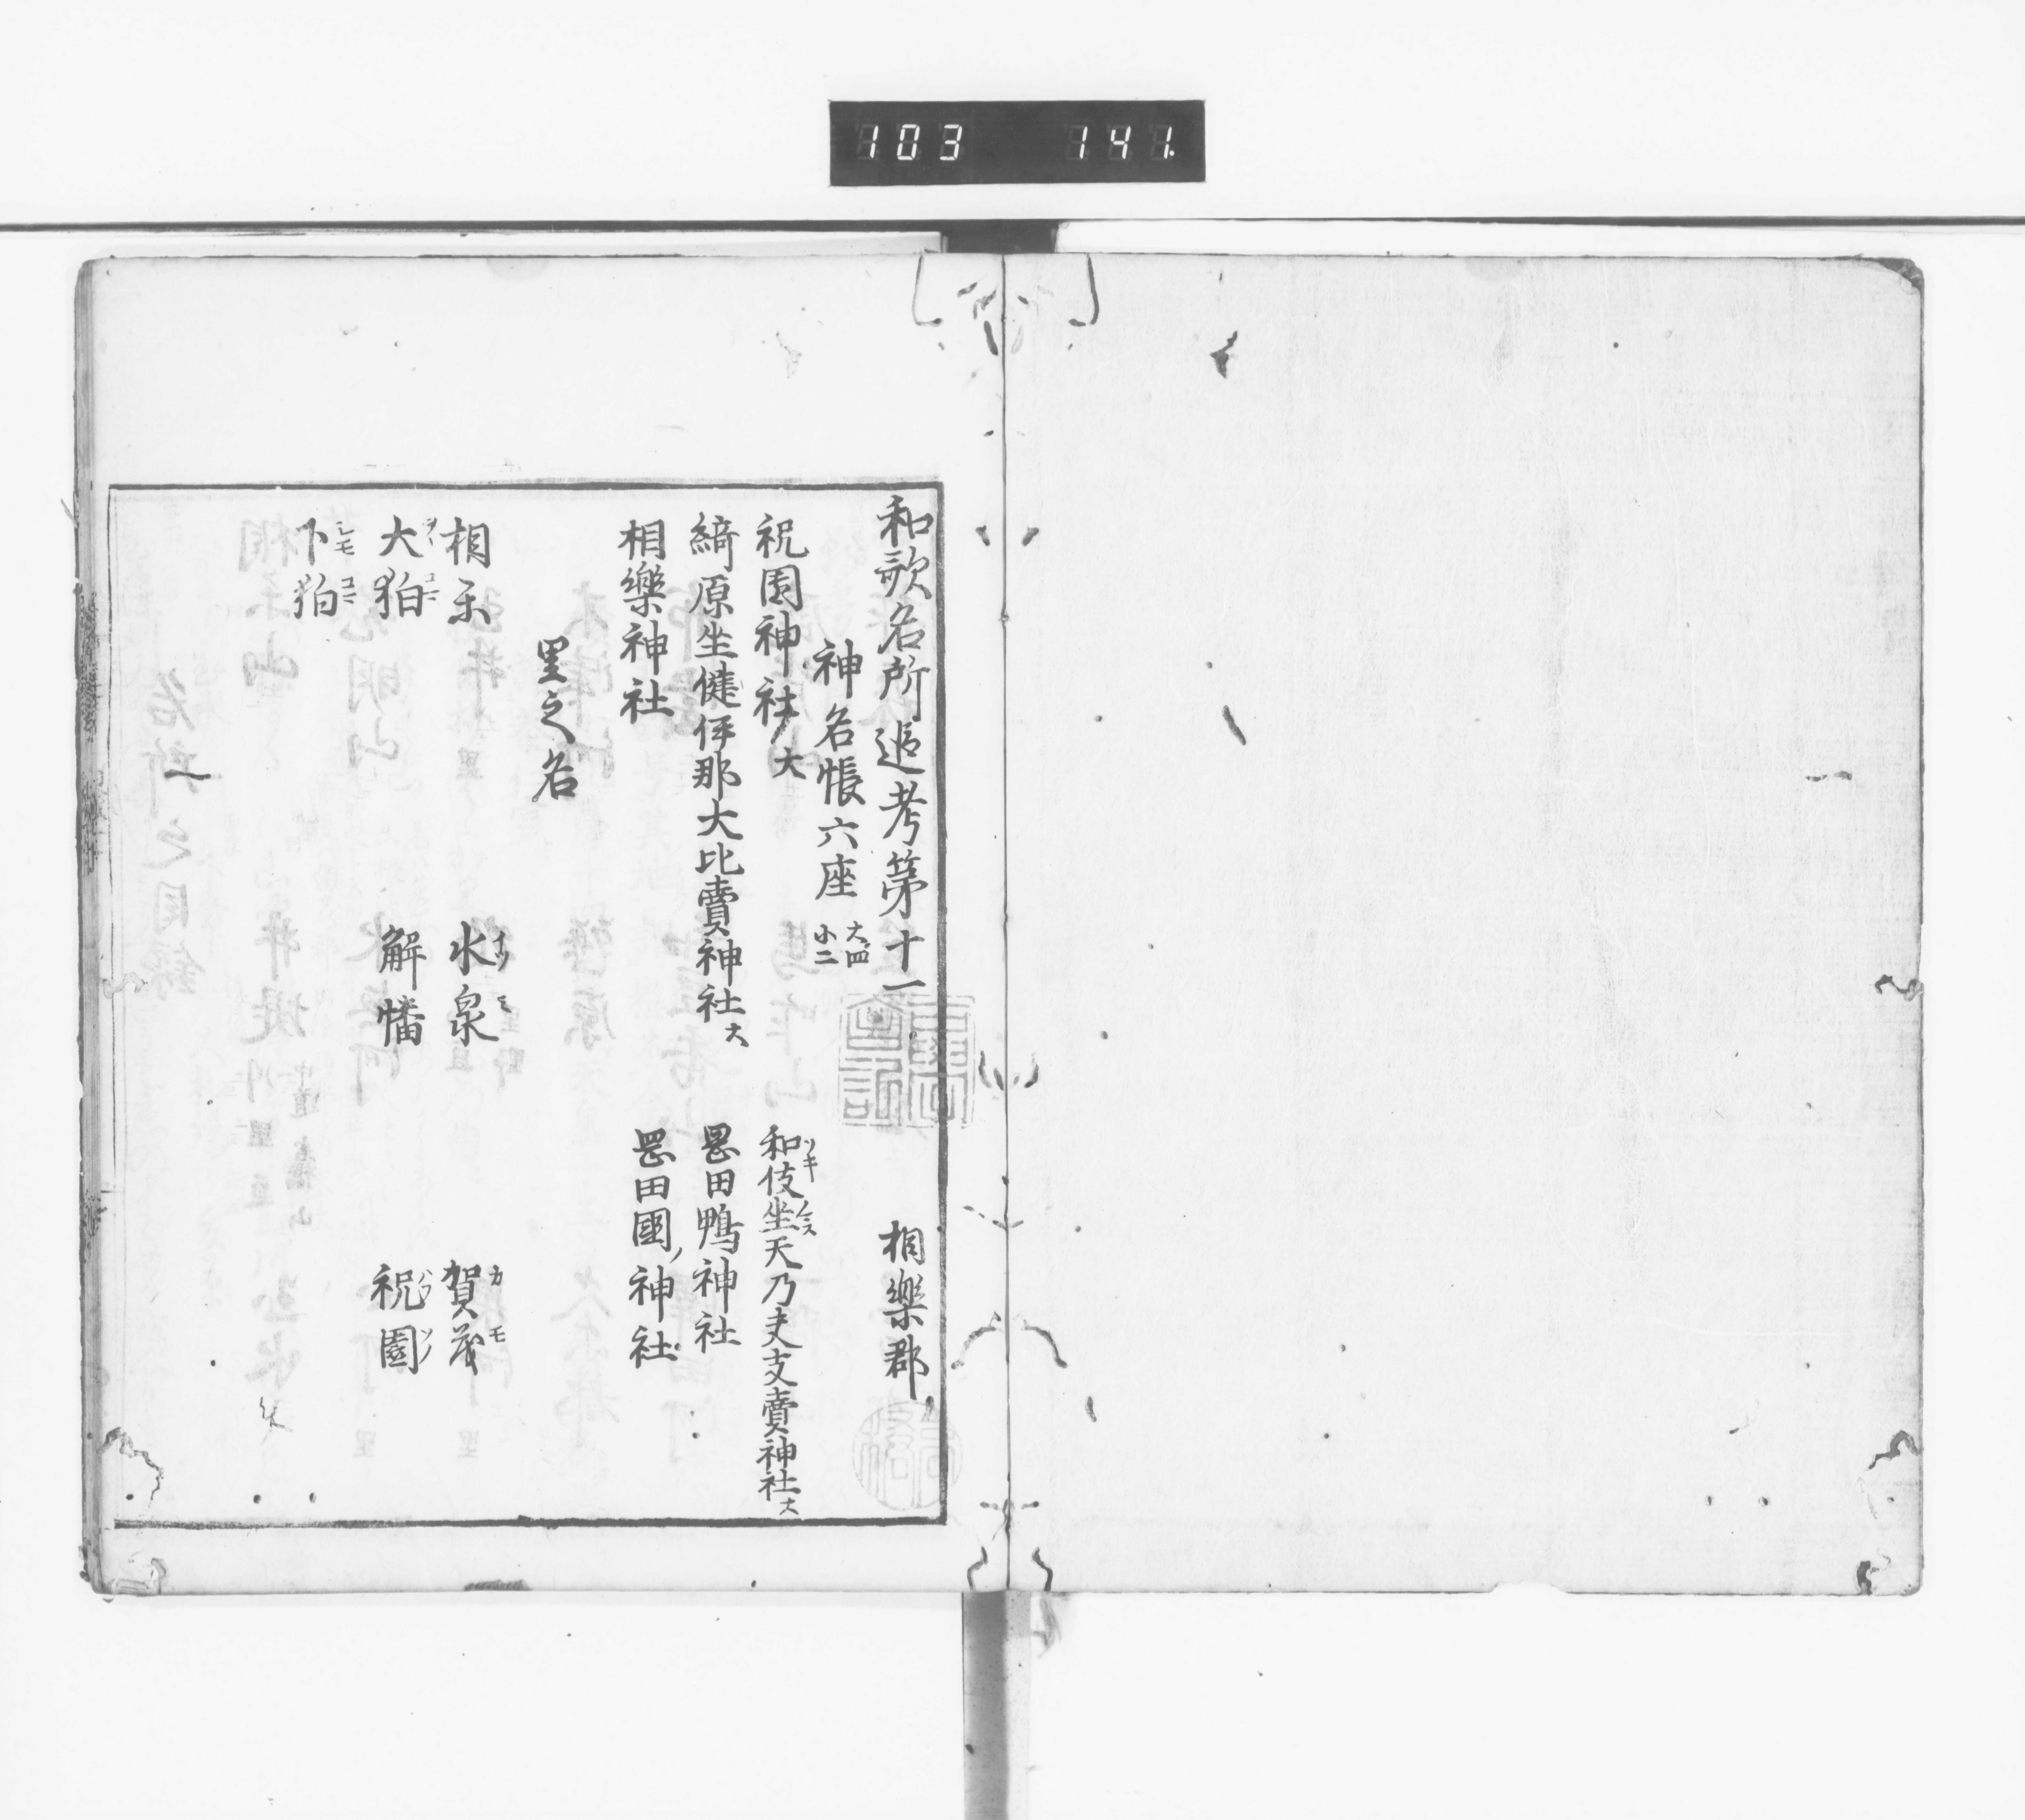 103 141
和歌名所追考第十一 相樂郡
神名帳六座 大四 小二
祝園神社 大 和伎坐天乃夫支賣神社 大
綺原坐健伊那大比賣神社 大 岡田鴨神社
相樂神社 岡田國神社
里之名
相楽 水泉 賀茂
大狛 解幡 祝園
下狛